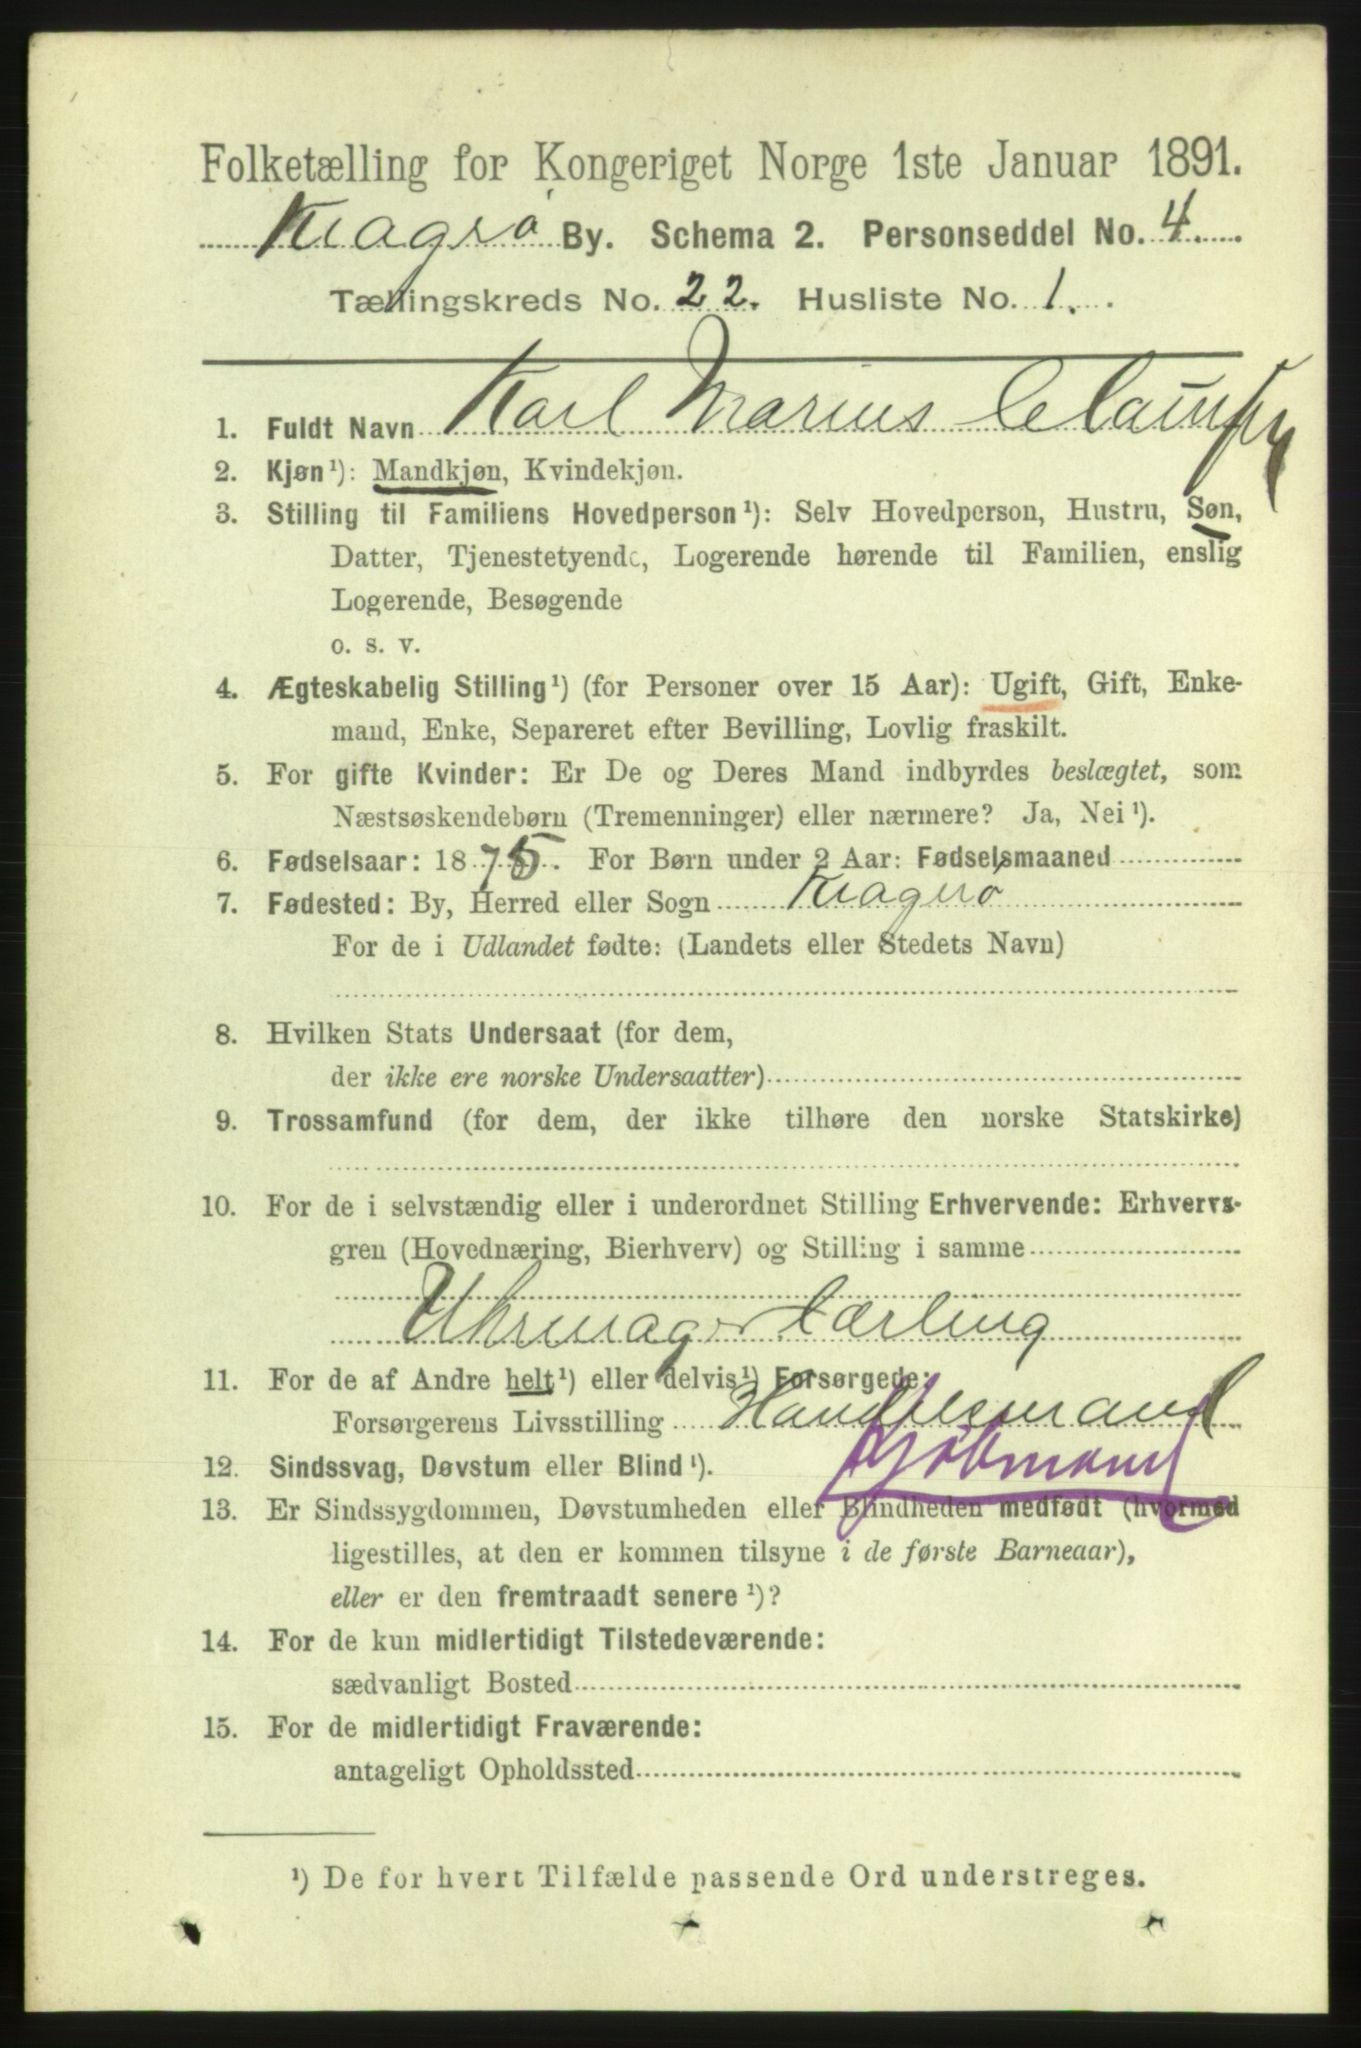 Folketælling for Kongeriget Norge 1ste Januar 1891.
Kragerø By. Schema 2. Personseddel No. 4.
Tællingskreds No. 22. Husliste No. 1.
1. Fuldt Navn Karl Marius
2. Kjøn¹): Mandkjøn, Kvindekjøn.
3. Stilling til Familiens Hovedperson¹): Selv Hovedperson, Hustru, Søn,
Datter, Tjenestetyende, Logerende hørende til Familien, enslig
Logerende, Besøgende
o. s. v.
4. Ægteskabelig Stilling¹) (for Personer over 15 Aar): Ugift, Gift, Enke-
mand, Enke, Separeret efter Bevilling, Lovlig fraskilt.
5. For gifte Kvinder: Er De og Deres Mand indbyrdes beslægtet, som
Næstsøskendebørn (Tremenninger) eller nærmere? Ja, Nei¹).
6. Fødselsaar: 1875. For Børn under 2 Aar: Fødselsmaaned
7. Fødested: By, Herred eller Sogn Kragerø
For de i Udlandet fødte: (Landets eller Stedets Navn)
8. Hvilken Stats Undersaat (for dem,
der ikke ere norske Undersaatter)
9. Trossamfund (for dem, der ikke tilhøre den norske Statskirke)
10. For de i selvstændig eller i underordnet Stilling Erhvervende: Erhvervs-
gren (Hovednæring, Bierhverv) og Stilling i samme
Uhrmager Lærling
11. For de af Andre helt¹) eller delvis¹) Forsørgede:
Forsørgerens Livsstilling Handelsmand
Kjøbmand
12. Sindssvag, Døvstum eller Blind¹).
13. Er Sindssygdommen, Døvstumheden eller Blindheden medfødt (hvormed
ligestilles, at den er kommen tilsyne i de første Barneaar),
eller er den fremtraadt senere¹)?
14. For de kun midlertidigt Tilstedeværende:
sædvanligt Bosted
15. For de midlertidigt Fraværende:
antageligt Opholdssted
¹) De for hvert Tilfælde passende Ord understreges.